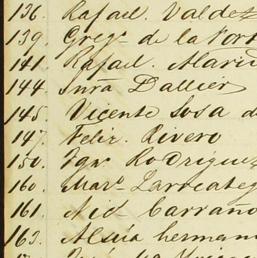 136. Rafael. Valdez
139. Greg.º de la Port
141. Rafael. Alari
144. Dallier
145. Vicente Sosa d
147. Felix. Rivero
150. Rodriguez
160. Mar.º Larreateg
161. Carraño
163. hermano